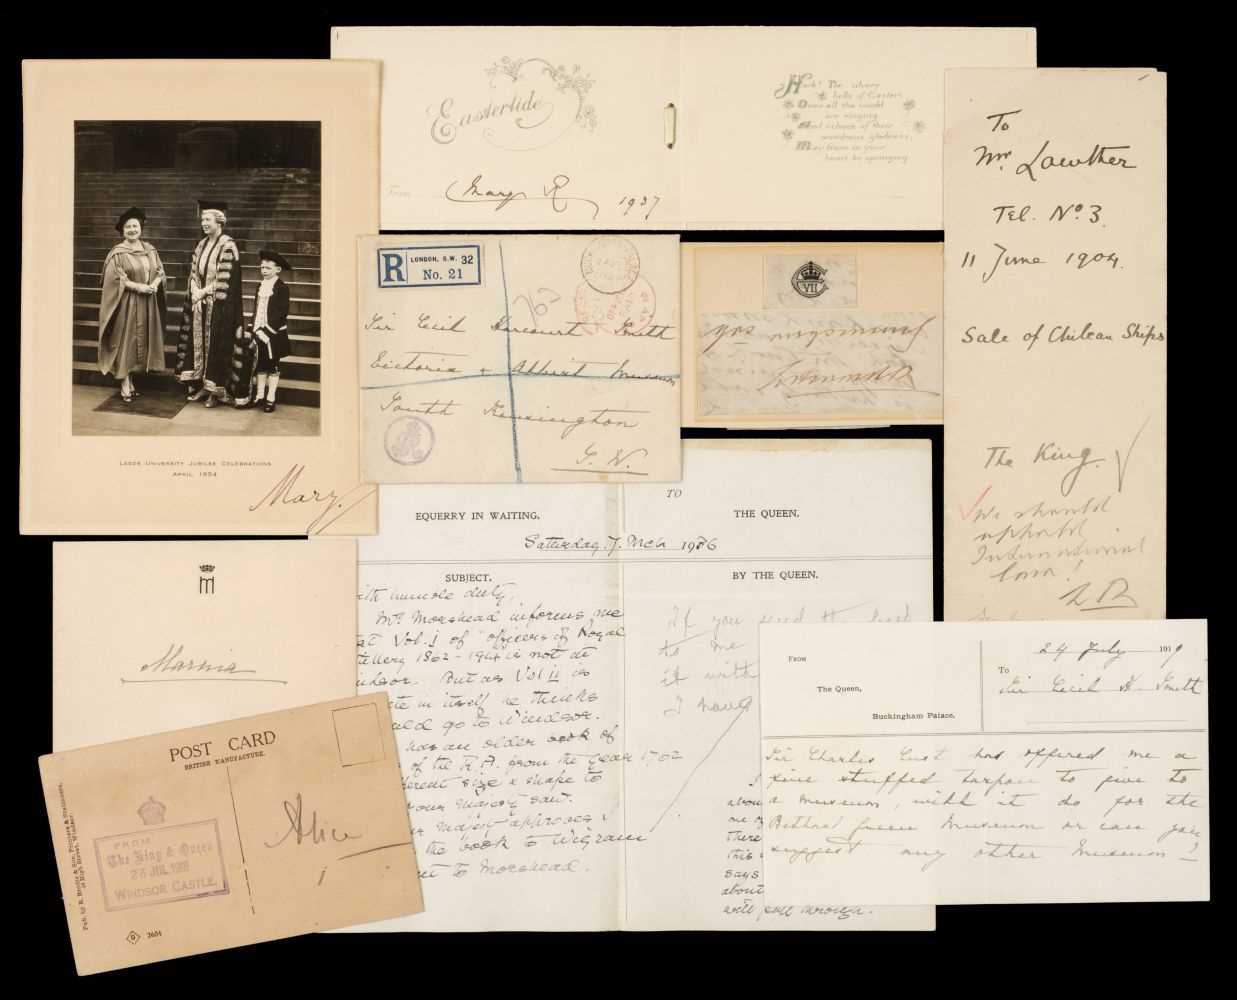 Eastertide
From
Mary R
1937
Hark! The silvery
bells of Easter
Over all the world
are ringing
And echoes of their
wondrous gladness,
May them in your
heart be springing
LEEDS UNIVERSITY JUBILEE CELEBRATIONS
APRIL 1954
Mary.
R
LONDON, S.W. 32
No. 21
Sir Cecil Harcourt Smith
Victoria & Albert Museum
South Kensington
S. W.
VII
To
Mr. Lowther
Tel. No 3.
11 June 1904.
Sale of Chilean Ships
The King.
We should
uphold
International
Law!
TO
EQUERRY IN WAITING.
THE QUEEN.
Saturday, 7. Mch 1936
SUBJECT.
BY THE QUEEN.
ith humble duty,
Mr. Morshead informs me
at Vol. I of officers of Royal
tillery 1862-1914 is not at
indsor. But as Vol II is
te in itself he thinks
uld go to Windsor.
has an older book of
of the R.A. from the year 1762
erent size & shape to
our Majesty saw.
Majesty approves I
the book to Wigram
to Morshead.
If you send the book
to me
it with
I have
abou
me
there
this
says
about
will fall through.
From
The Queen,
Buckingham Palace.
24 July 191
To
Sir Cecil H. Smith
Sir Charles Cust has offered me a
fine stuffed tarpon to give to
a museum, will it do for the
Bethnal Green Museum or can you
suggest any other Museum?
M
Marina
POST CARD
BRITISH MANUFACTURE.
FROM
The King & Queen
WINDSOR CASTLE.
Alice
2604